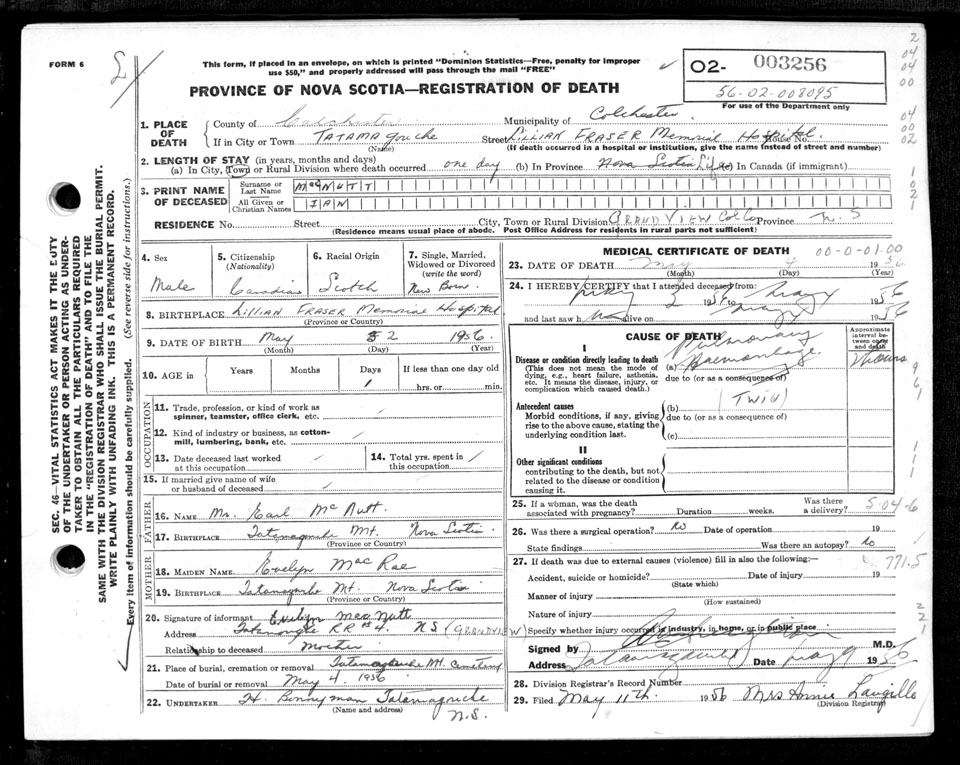 FORM 6
This form, if placed in an envelope, on which is printed "Dominion Statistics—Free, penalty for improper
use $50," and properly addressed will pass through the mail "FREE"
PROVINCE OF NOVA SCOTIA—REGISTRATION OF DEATH
O2- 003256
56-02-008095
For use of the Department only
SEC. 46—VITAL STATISTICS ACT MAKES IT THE DUTY
OF THE UNDERTAKER OR PERSON ACTING AS UNDER-
TAKER TO OBTAIN ALL THE PARTICULARS REQUIRED
IN THE "REGISTRATION OF DEATH" AND TO FILE THE
SAME WITH THE DIVISION REGISTRAR WHO SHALL ISSUE THE BURIAL PERMIT.
WRITE PLAINLY WITH UNFADING INK. THIS IS A PERMANENT RECORD.
Every item of information should be carefully supplied. (See reverse side for instructions.)
1. PLACE OF DEATH
County of Colchester Municipality of Colchester
If in City or Town TATAMAGOUCHE Street LILLIAN FRASER Memorial Hospital House No.
(Name) (If death occurred in a hospital or institution, give the name instead of street and number)
2. LENGTH OF STAY (in years, months and days)
(a) In City, Town or Rural Division where death occurred one day (b) In Province Nova Scotia Life (c) In Canada (if immigrant)
3. PRINT NAME OF DECEASED
Surname or Last Name MacNUTT
All Given or Christian Names IAN
RESIDENCE No. Street City, Town or Rural Division GRANDVIEW Col Co Province N.S
(Residence means usual place of abode. Post Office Address for residents in rural parts not sufficient)
4. Sex Male
5. Citizenship (Nationality) Canadian
6. Racial Origin Scotch
7. Single, Married, Widowed or Divorced (write the word) New Born.
8. BIRTHPLACE LILLIAN FRASER Memorial Hospital
(Province or Country)
9. DATE OF BIRTH May 2 1956.
(Month) (Day) (Year)
10. AGE in Years Months Days If less than one day old
1 hrs. or min.
OCCUPATION
11. Trade, profession, or kind of work as
spinner, teamster, office clerk, etc.
12. Kind of industry or business, as cotton-
mill, lumbering, bank, etc.
13. Date deceased last worked
at this occupation
14. Total yrs. spent in
this occupation
15. If married give name of wife
or husband of deceased
FATHER
16. NAME Mr. Earl McNutt
17. BIRTHPLACE Tatamagouche Mt. Nova Scotia
(Province or Country)
MOTHER
18. MAIDEN NAME Evelyn MacRae
19. BIRTHPLACE Tatamagouche Mt. Nova Scotia
(Province or Country)
20. Signature of informant Evelyn MacNutt
Address Tatamagouche RR #4. NS (GRANDVIEW)
Relationship to deceased Mother
21. Place of burial, cremation or removal Tatamagouche Mt. Cemetery
Date of burial or removal May 4. 1956
22. UNDERTAKER H. Bonnyman Tatamagouche
(Name and address) N.S.
MEDICAL CERTIFICATE OF DEATH 00-0-01.00
23. DATE OF DEATH May 4 1956
(Month) (Day) (Year)
24. I HEREBY CERTIFY that I attended deceased from
May 2 1956 to May 4 1956
and last saw h alive on May 1956
CAUSE OF DEATH
Approximate interval between onset and death
I
Disease or condition directly leading to death
(This does not mean the mode of
dying, e.g., heart failure, asthenia,
etc. It means the disease, injury, or
complication which caused death.)
(a) Pulmonary Haemorrhage
due to (or as a consequence of)
Antecedent causes
Morbid conditions, if any, giving
rise to the above cause, stating the
underlying condition last.
(b) (TWIN)
due to (or as a consequence of)
(c)
II
Other significant conditions
contributing to the death, but not
related to the disease or condition
causing it.
25. If a woman, was the death
associated with pregnancy? Duration weeks. Was there a delivery? 5-04-6
26. Was there a surgical operation? No Date of operation 19
State findings Was there an autopsy? No
27. If death was due to external causes (violence) fill in also the following: 771.5
Accident, suicide or homicide? Date of injury 19
(State which)
Manner of injury
(How sustained)
Nature of injury
Specify whether injury occurred in industry, in home, or in public place
Signed by M.D.
Address Tatamagouche Date May 9 1956
28. Division Registrar's Record Number
29. Filed May 11th. 1956 Mrs Annie Langille
(Division Registrar)